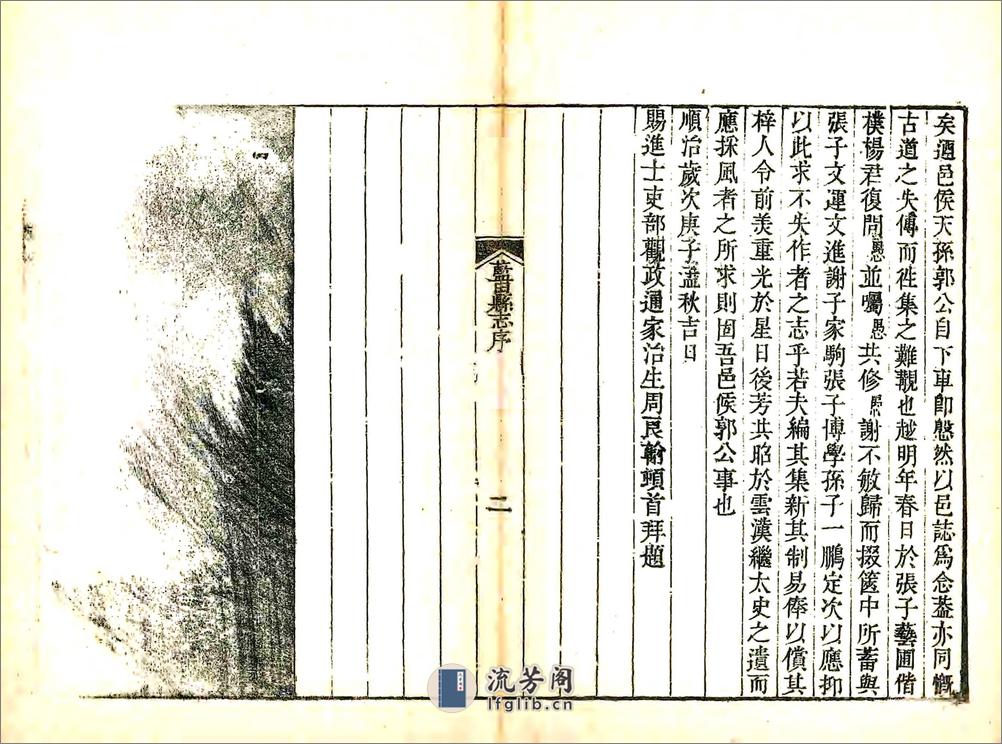 矣適邑侯天孫郭公自下車卽慇然以邑誌爲念葢亦同慨
古道之失傳而徃集之難覯也越明年春日於張子藝圃偕
樸楊君復問愚並囑愚共修愚謝不敏歸而掇篋中所蓄與
張子文運文進謝子家駒張子博學孫子一鵬定次以應抑
以此求不失作者之志乎若夫編其集新其制易俸以償其
梓人令前羙重光於星日後芳共昭於雲漢繼太史之遺而
應採風者之所求則固吾邑侯郭公事也
順治歲次庚子孟秋吉日
賜進士吏部觀政通家治生周民翰頓首拜題
藍田縣志序
二
流芳阁
lfglib.cn